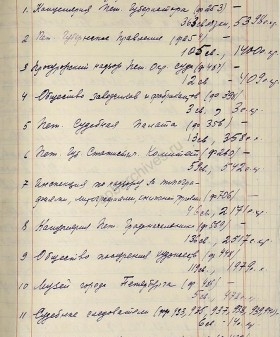 1. Канцелярия Пет. Губернатора (ф 253) —
2 Пет. Губернское Правление (ф 254) —
105 св., 1400 ед.
3 Прокурский надзор Пет. Окр. суда (ф 487) —
12 св. — 409 ед.
4 Общество заводчиков и фабрикантов
3 св., 30 ед.
5 Пет. Судебная Палата (ф 356)
13 св., 358 ед.
6 Пет. Губ. Статистич. Комитет (ф 260) —
58 св., 542 ед.
7 Инспекция по надзору за типогра-
фиями, литографиями, книжн. торговл. (ф 706) —
42 св., 2171 ед.
8 Канцелярия Пет. Градоначальника (ф 569)
2517 ед.
9 Общество поощрения художеств (ф 448)
19 св., 1979
10 Музей города Петербурга
5 св.,
11 Судебные следователи
6 св. — 147 ед.